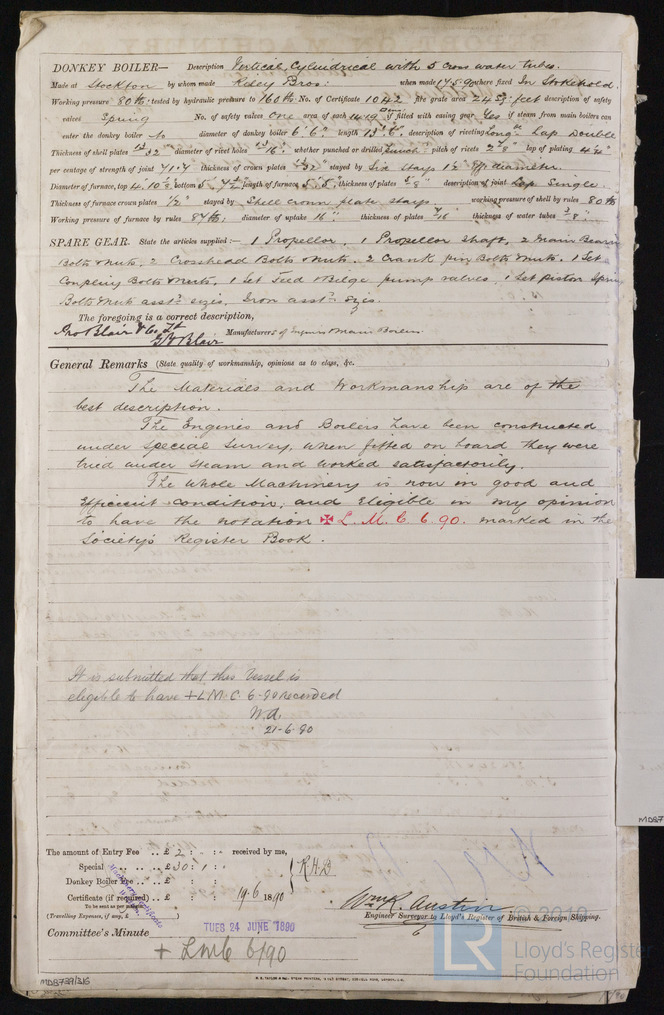 DONKEY BOILER— Description Vertical, Cylindrical with 5 cross water tubes.
Made at Stockton by whom made Riley Bros: when made 17.5.90 where fixed In Stokehold.
Working pressure 80 lbs. tested by hydraulic pressure to 160 lbs No. of Certificate 1042 fire grate area 24 Sq: feet description of safety
valves Spring No. of safety valves One area of each 14.19 if fitted with easing gear Yes if steam from main boilers can
enter the donkey boiler No diameter of donkey boiler 6' 6" length 13' 6" description of riveting Long: Lap Double
Thickness of shell plates 15/32" diameter of rivet holes 13/16" whether punched or drilled Punch: pitch of rivets 2 7/8" lap of plating 4 1/4"
per centage of strength of joint 71.7 thickness of crown plates 15/32" stayed by Six stays 1 1/2" Eff: diameter.
Diameter of furnace, top 4' 10 1/2" bottom 5' 7 1/2" length of furnace 5' 5" thickness of plates 5/8" description of joint Lap Single.
Thickness of furnace crown plates 1/2" stayed by Shell crown plate stays. working pressure of shell by rules 80 lbs
Working pressure of furnace by rules 87 lbs; diameter of uptake 16" thickness of plates 7/16" thickness of water tubes 3/8"
SPARE GEAR. State the articles supplied:— 1 Propellor, 1 Propellor Shaft, 2 Main Bearing
Bolts & Nuts, 2 Crosshead Bolts & Nuts. 2 Crank pin Bolts & Nuts. 1 Set
Coupling Bolts & Nuts, 1 Set Feed & Bilge pump valves, 1 Set Piston Springs
Bolts & Nuts asstd sizes, Iron asstd sizes.
The foregoing is a correct description,
Jno Blair & Co Ld
G Y Blair Manufacturers of Engines & Main Boilers.
General Remarks (State quality of workmanship, opinions as to class, &c.)
The Materials and Workmanship are of the
best description.
The Engines and Boilers have been constructed
under special survey, when fitted on board they were
tried under steam and worked satisfactorily.
The whole Machinery is now in good and
efficient condition, and eligible in my opinion
to have the notation ✠ L. M. C. 6.90. marked in the
Society's Register Book.
It is submitted that this Vessel is
eligible to have + L.M.C. 6.90 recorded
W.A.
21-6-90
The amount of Entry Fee .. £ 2 : - : - received by me,
Special .. .. £ 30 : 1 :
Donkey Boiler Fee .. £ : : R.H.B
Certificate (if required) .. £ : : 19.6 1890
To be sent as per margin.
(Travelling Expenses, if any, £ )
Machinery Certificate
Wm R. Austin
Engineer Surveyor to Lloyd's Register of British & Foreign Shipping.
Committee's Minute TUES 24 JUNE 1890
+ LMC 6/90
MDB739/316
LR
© 2019
Lloyd's Register
Foundation
MDB7